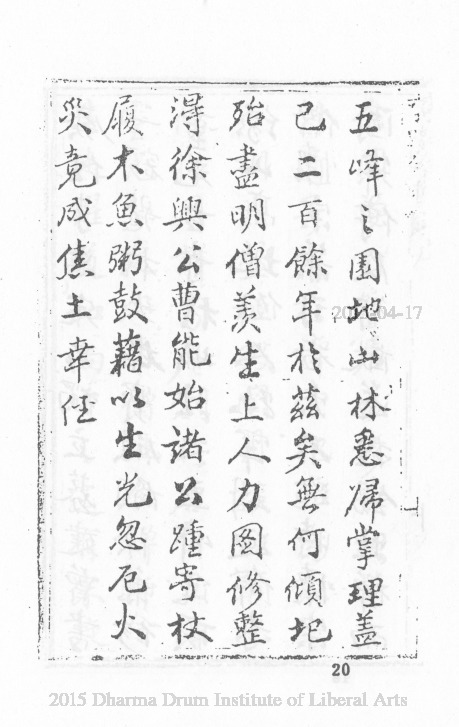 五峰之園地山林悉歸掌理蓋
已二百餘年於茲矣無何傾圯
殆盡明僧羨生上人力圖修整
淂徐興公曹能始諸公踵寄杖
履木魚粥鼓藉以生光忽厄火
災竟成焦土幸任
20
2015 Dharma Drum Institute of Liberal Arts